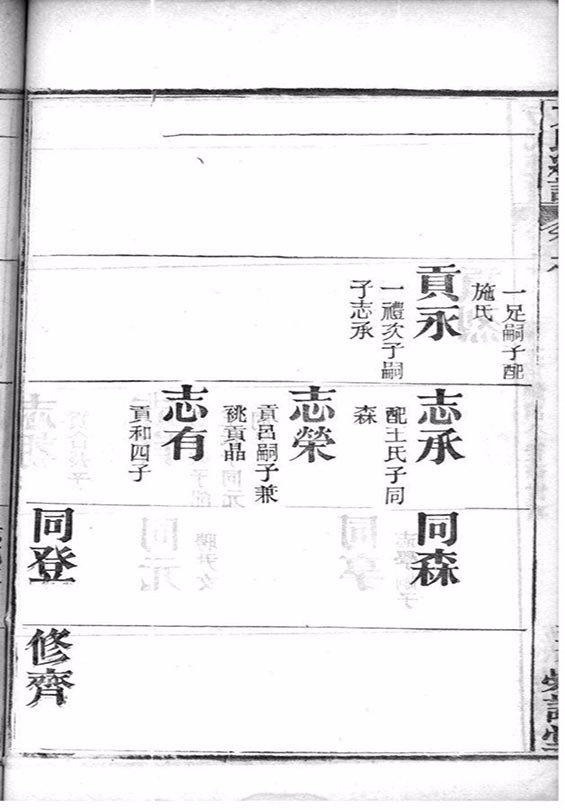 一足嗣子配
施氏
貢永
一禮次子嗣
子志承
志承
配土氏子同
森
志榮
貢呂嗣子兼
祧貢晶
志有
貢和四子
同森
同登
修齊